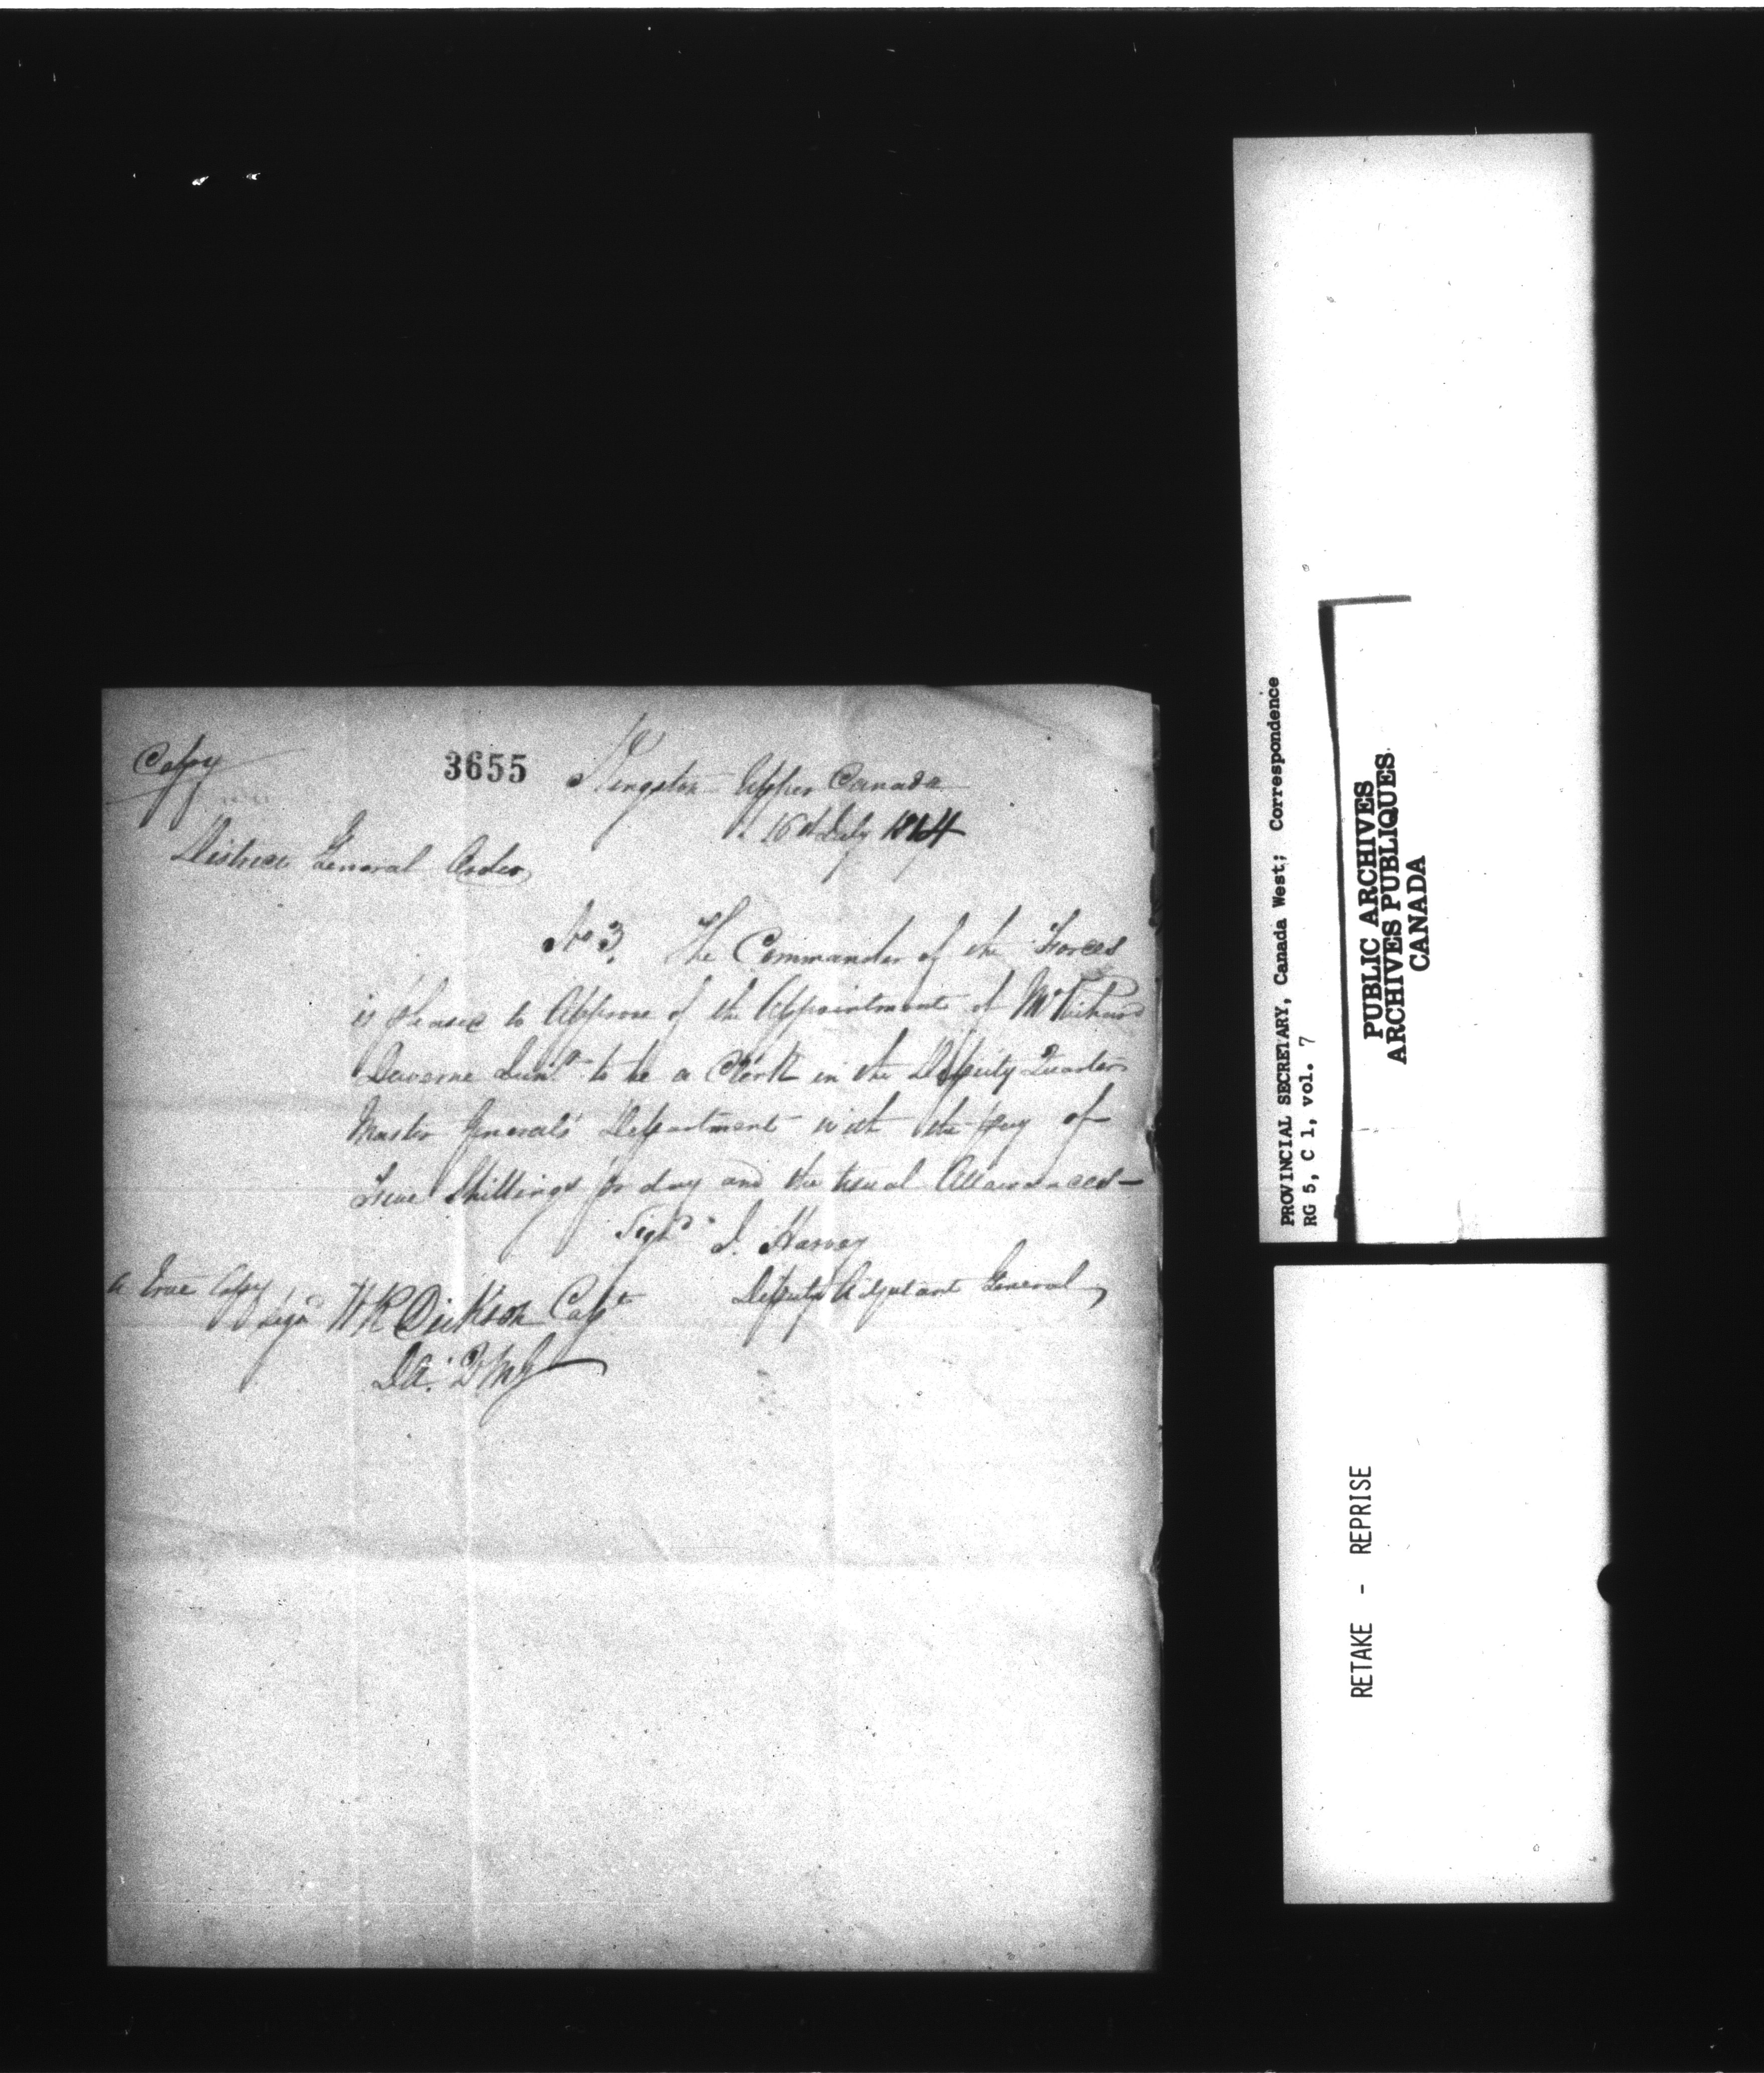 Copy
3655
Kingston Upper Canada
16th July 1814
District General Order
No 3. The Commander of the Forces
is pleased to Approve of the Appointment of Mr Richard
Daverne Junr to be a Clerk in the Deputy Quarter
Master General's Department with the pay of
Five Shillings pr day and the usual Allowances—
Signd J. Harvey
Deputy Adjutant General
A True Copy
Signd W R Dickson Capt
D.A.Q.M.G
PROVINCIAL SECRETARY, Canada West; Correspondence
RG 5, C 1, vol. 7
PUBLIC ARCHIVES
ARCHIVES PUBLIQUES
CANADA
RETAKE - REPRISE